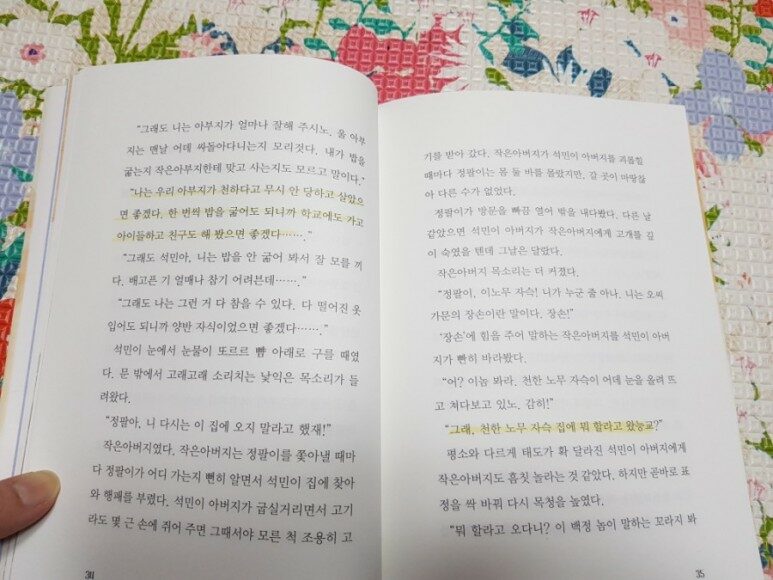 “그래도 니는 아부지가 얼마나 잘해 주시노. 울 아부
지는 맨날 어데 싸돌아다니는지 모리겟다. 내가 밥을
굶는지 작은아부지한테 맞고 사는지도 모르고 말이다.”
“나는 우리 아부지가 천하다고 무시 안 당하고 살았으
면 좋겠다. 한 번씩 밥을 굶어도 되니까 학교에도 가고
아이들하고 친구도 해 봤으면 좋겠다…….”
“그래도 석민아, 니는 밥을 안 굶어 봐서 잘 모를 끼
다. 배고픈 기 얼매나 참기 어려븐데…….”
“그래도 나는 그런 거 다 참을 수 있다. 다 떨어진 옷
입어도 되니까 양반 자식이었으면 좋겠다…….”
석민이 눈에서 눈물이 또르르 뺨 아래로 구를 때였
다. 문 밖에서 고래고래 소리치는 낯익은 목소리가 들
려왔다.
“정팔아, 니 다시는 이 집에 오지 말라고 했재!”
작은아버지였다. 작은아버지는 정팔이를 쫓아낼 때마
다 정팔이가 어디 가는지 뻔히 알면서 석민이 집에 찾아
와 행패를 부렸다. 석민이 아버지가 굽실거리면서 고기
라도 몇 근 손에 쥐어 주면 그때서야 모른 척 조용히 고
34
기를 받아 갔다. 작은아버지가 석민이 아버지를 괴롭힐
때마다 정팔이는 몸 둘 바를 몰랐지만, 갈 곳이 마땅찮
아 다른 수가 없었다.
정팔이가 방문을 빠끔 열어 밖을 내다봤다. 다른 날
같았으면 석민이 아버지가 작은아버지에게 고개를 깊
이 숙였을 텐데 그날은 달랐다.
작은아버지 목소리는 더 커졌다.
“정팔이, 이노무 자슥! 니가 누군 줄 아나. 니는 오씨
가문의 장손이란 말이다. 장손!”
‘장손’에 힘을 주어 말하는 작은아버지를 석민이 아버
지가 빤히 바라봤다.
“어? 이놈 봐라. 천한 노무 자슥이 어데 눈을 올려 뜨
고 쳐다보고 있노. 감히!”
“그래, 천한 노무 자슥 집에 뭐 할라고 왔능교?”
평소와 다르게 태도가 확 달라진 석민이 아버지에게
작은아버지도 흠칫 놀라는 것 같았다. 하지만 곧바로 표
정을 싹 바꿔 다시 목청을 높였다.
“뭐 할라고 오다니? 이 백정 놈이 말하는 꼬라지 봐
35